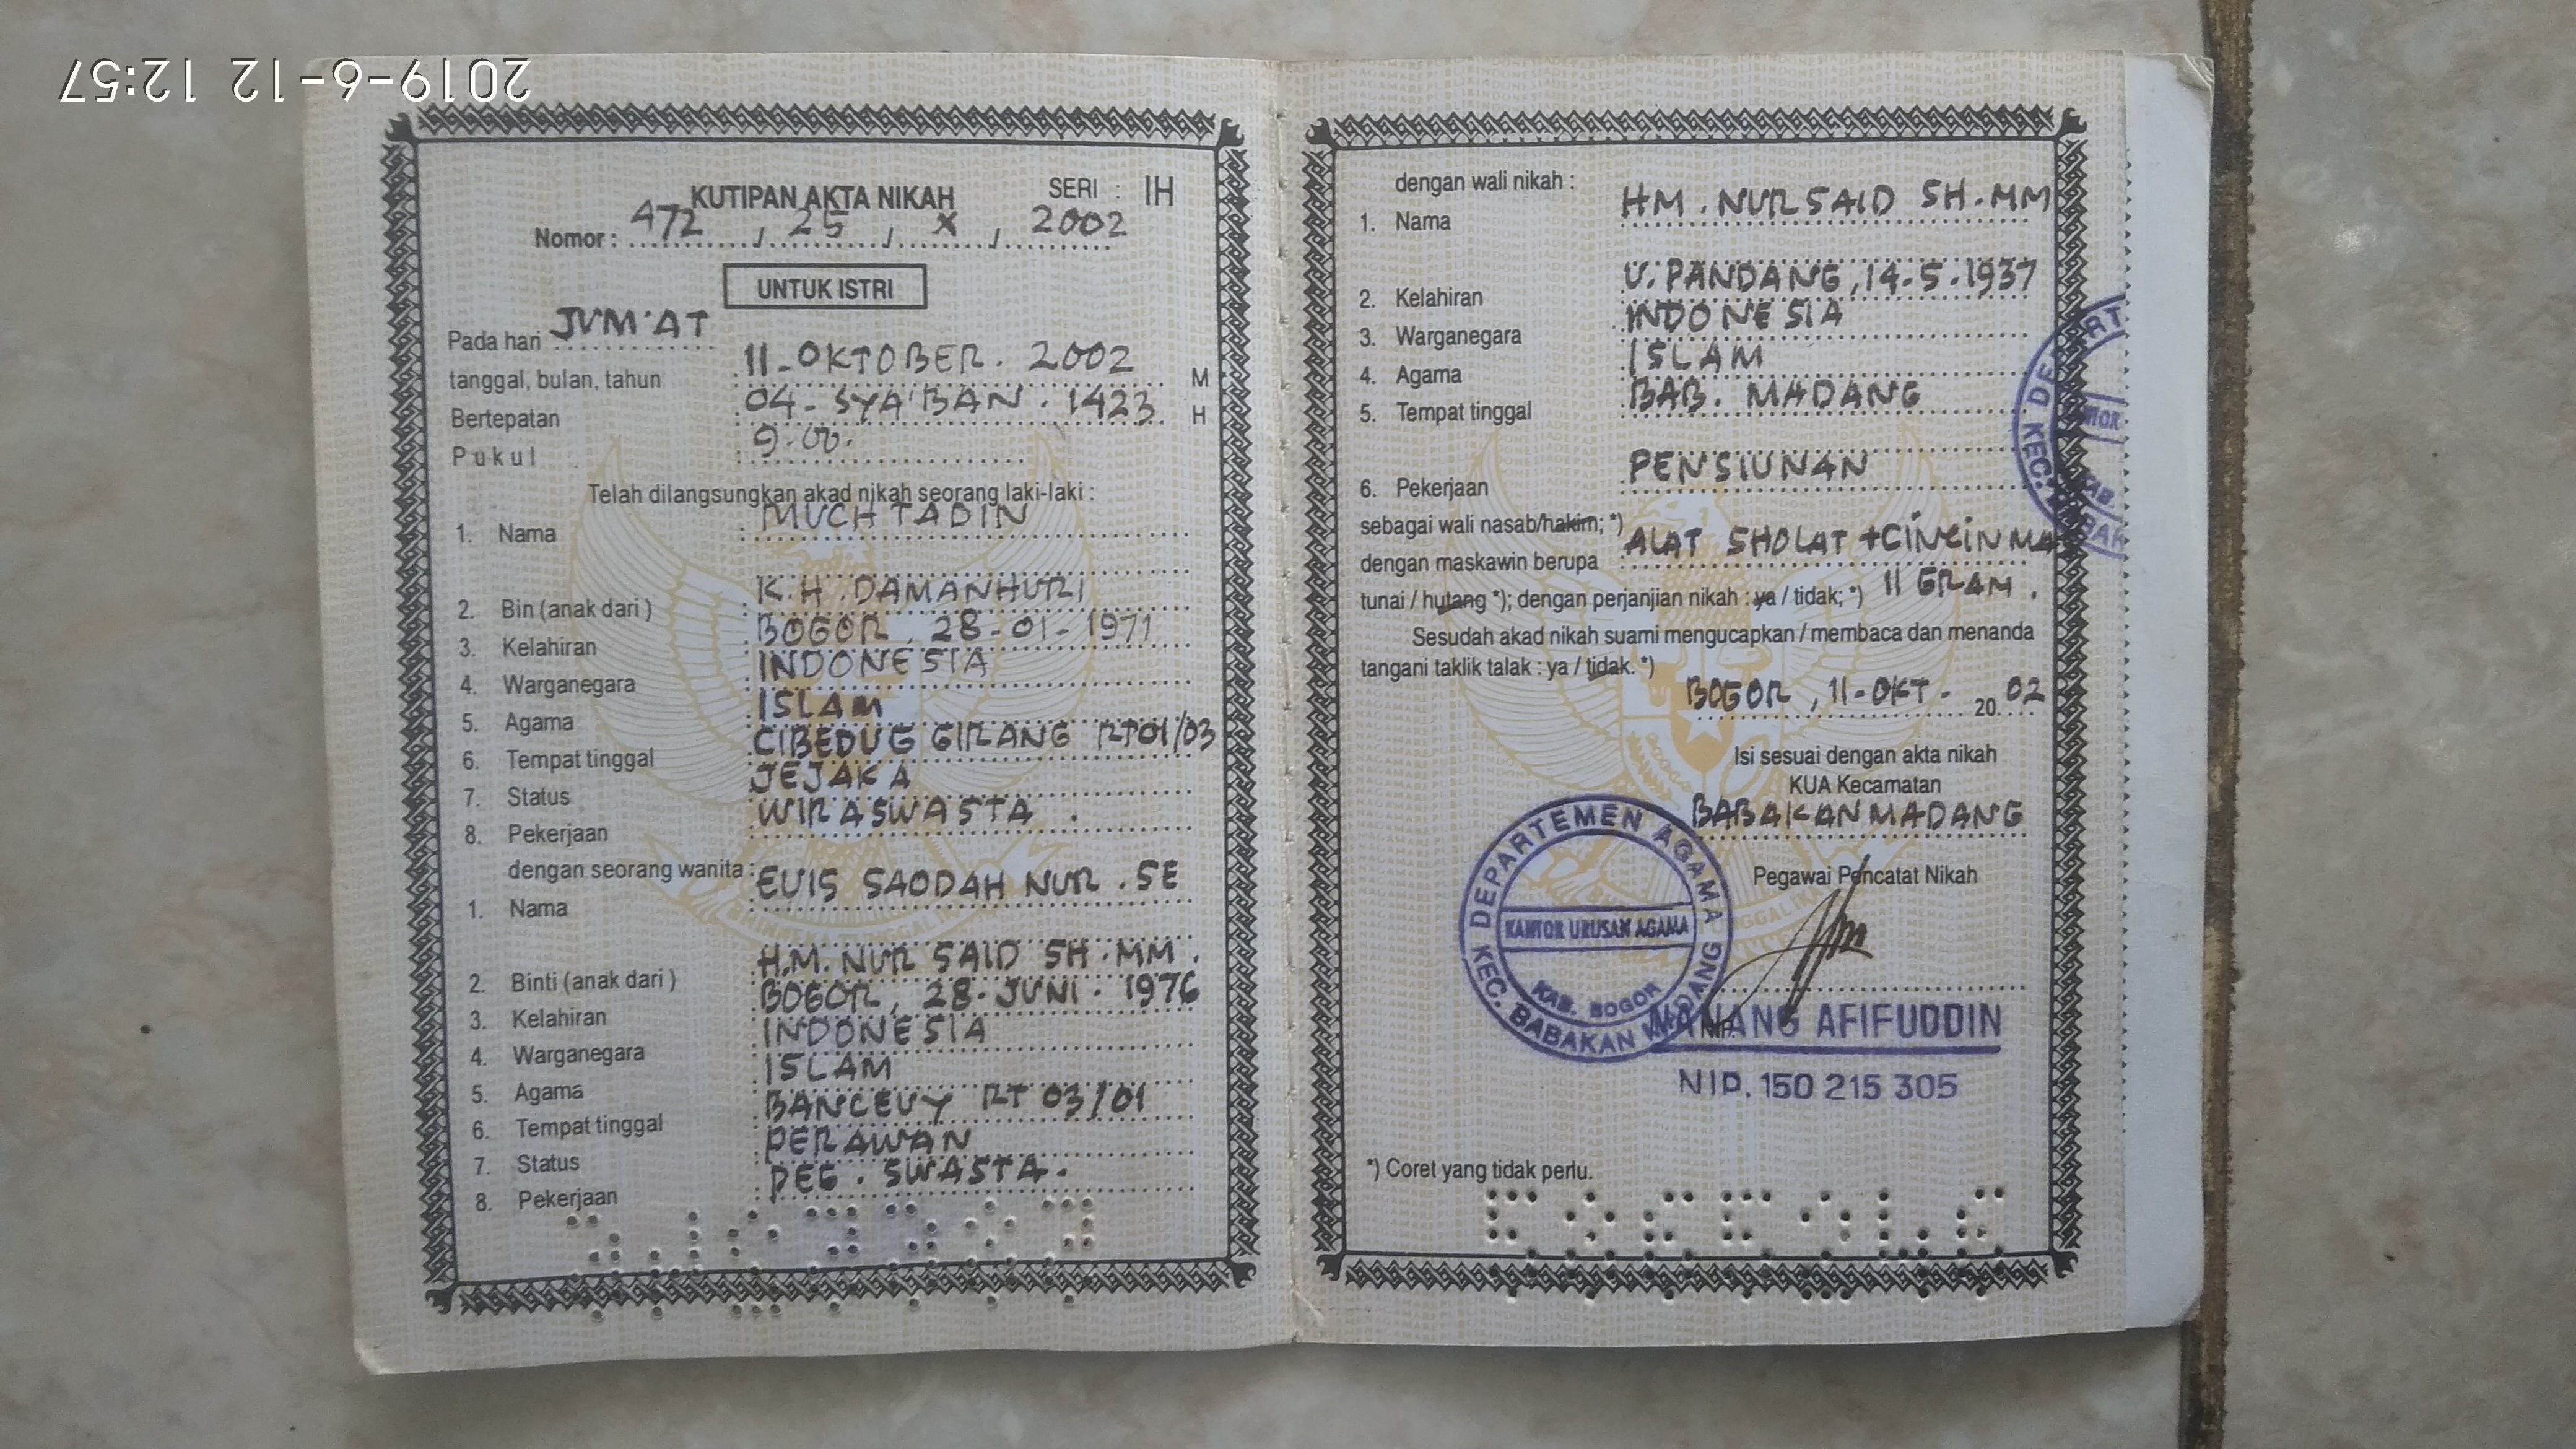 2019-6-12 12:57
KUTIPAN AKTA NIKAH
SERI : IH
Nomor : 472 / 25 / X / 2002
UNTUK ISTRI
Pada hari JUM'AT
tanggal, bulan, tahun : 11-OKTOBER. 2002 M
Bertepatan : 04-SYA'BAN. 1423 H
Pukul : 9.00.
Telah dilangsungkan akad nikah seorang laki-laki :
1. Nama : MUCHTADIN
2. Bin (anak dari) : K.H. DAMANHURI
3. Kelahiran : BOGOR, 28-01-1971
4. Warganegara : INDONESIA
5. Agama : ISLAM
6. Tempat tinggal : CIBEDUG GIRANG RT 01/03
7. Status : JEJAKA
8. Pekerjaan : WIRASWASTA.
dengan seorang wanita :
1. Nama : EUIS SAODAH NUR. SE
2. Binti (anak dari) : H.M. NUR SAID SH.MM.
3. Kelahiran : BOGOR, 28-JUNI. 1976
4. Warganegara : INDONESIA
5. Agama : ISLAM
6. Tempat tinggal : BANCEUY RT 03/01
7. Status : PERAWAN
8. Pekerjaan : PEG. SWASTA.
dengan wali nikah :
1. Nama HM. NUR SAID SH.MM
2. Kelahiran U. PANDANG, 14-5-1937
3. Warganegara INDONESIA
4. Agama ISLAM
5. Tempat tinggal BAB. MADANG
6. Pekerjaan PENSIUNAN
sebagai wali nasab/hakim; *)
dengan maskawin berupa ALAT SHOLAT + CINCIN MA
tunai / hutang *); dengan perjanjian nikah : ya / tidak; *) 11 GRAM.
Sesudah akad nikah suami mengucapkan / membaca dan menanda
tangani taklik talak : ya / tidak. *)
BOGOR, 11-OKT- 20 02
Isi sesuai dengan akta nikah
KUA Kecamatan
BABAKAN MADANG
Pegawai Pencatat Nikah
DEPARTEMEN AGAMA
KANTOR URUSAN AGAMA
KAB. BOGOR
KEC. BABAKAN MADANG
NANANG AFIFUDDIN
NIP. 150 215 305
*) Coret yang tidak perlu.